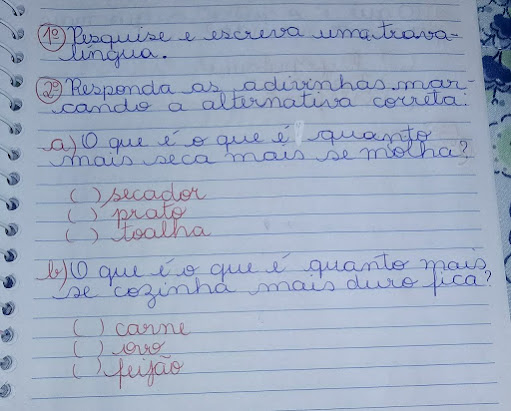 1º Pesquise e escreva uma trava-
língua.
2º Responda as adivinhas mar-
cando a alternativa correta:
a) O que é o que é quanto
mais seca mais se molha?
( ) secador
( ) prato
( ) toalha
b) O que é o que é quanto mais
se cozinha mais duro fica?
( ) carne
( ) ovo
( ) feijão